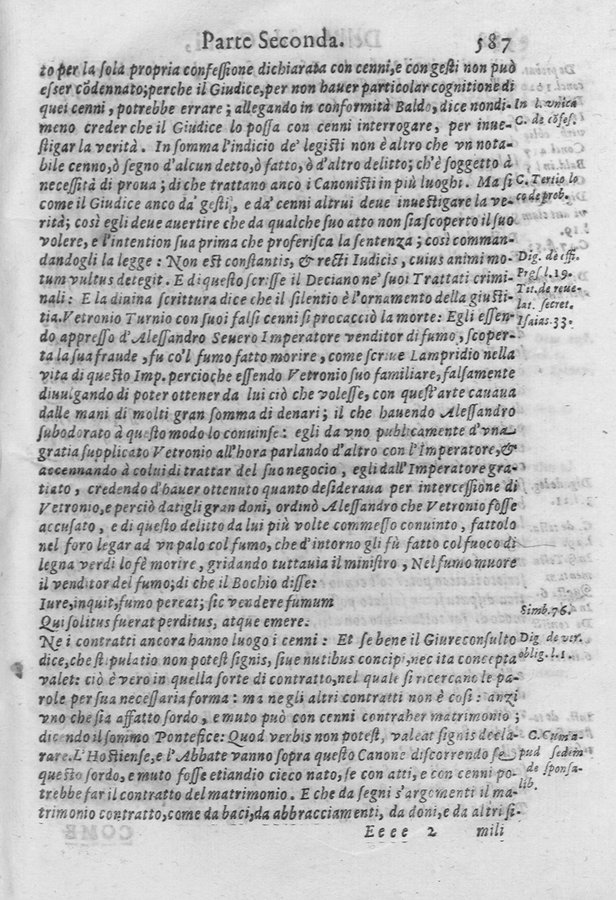 Parte Seconda. 587
to per la sola propria confessione dichiarata con cenni, e con gesti non può
esser cõdennato; perche il Giudice, per non hauer particolar cognitione di
quei cenni, potrebbe errare; allegando in conformità Baldo, dice nondi-
meno creder che il Giudice lo possa con cenni interrogare, per inue-
stigar la verità. In somma l'indicio de' legisti non è altro che vn nota-
bile cenno, ò segno d'alcun detto, ò fatto, ò d'altro delitto; ch'è soggetto à
necessità di proua; di che trattano anco i Canonisti in più luoghi. Ma si
come il Giudice anco da' gesti, e da' cenni altrui deue inuestigare la ve-
rità; così egli deue auertire che da qualche suo atto non sia scoperto il suo
volere, e l'intention sua prima che proferisca la sentenza; così comman-
dandogli la legge: Non est constantis, & recti Iudicis, cuius animi mo-
tum vultus detegit. E di questo scrisse il Deciano ne' suoi Trattati crimi-
nali: E la diuina scrittura dice che il silentio è l'ornamento della giusti-
tia. Vetronio Turnio con suoi falsi cenni si procacciò la morte: Egli essen-
do appresso d'Alessandro Seuero Imperatore venditor di fumo, scoper-
ta la sua fraude, fu co'l fumo fatto morire, come scriue Lampridio nella
vita di questo Imp. percioche essendo Vetronio suo familiare, falsamente
diuulgando di poter ottener da lui ciò che volesse, con quest'arte cauaua
dalle mani di molti gran somma di denari; il che hauendo Alessandro
subodorato à questo modo lo conuinse: egli da vno publicamente d'vna
gratia supplicato Vetronio all'hora parlando d'altro con l'Imperatore, &
accennando à colui di trattar del suo negocio, egli dall'Imperatore gra-
tiato, credendo d'hauer ottenuto quanto desideraua per intercessione di
Vetronio, e perciò datigli gran doni, ordinò Alessandro che Vetronio fosse
accusato, e di questo delitto da lui più volte commesso conuinto, fattolo
nel foro legar ad vn palo col fumo, che d'intorno gli fù fatto col fuoco di
legna verdi lo fè morire, gridando tuttauia il ministro, Nel fumo muore
il venditor del fumo; di che il Bochio disse:
Iure, inquit, fumo pereat; sic vendere fumum
Qui solitus fuerat perditus, atque emere.
Ne i contratti ancora hanno luogo i cenni: Et se bene il Giureconsulto
dice, che stipulatio non potest signis, siue nutibus concipi, nec ita concepta
valet: ciò è vero in quella sorte di contratto, nel quale si ricercano le pa-
role per sua necessaria forma: ma ne gli altri contratti non è così: anzi
vno che sia affatto sordo, e muto può con cenni contraher matrimonio;
dicendo il sommo Pontefice: Quod verbis non potest, valeat signis decla-
rare. L'Hostiense, e l'Abbate vanno sopra questo Canone discorrendo se
questo sordo, e muto fosse etiandio cieco nato, se con atti, e con cenni po-
trebbe far il contratto del matrimonio. E che da segni s'argomenti il ma-
trimonio contratto, come da baci, da abbracciamenti, da doni, e da altri si-
Eeee 2 mili
In l. vnica
C. de cōfes.
C. Tertio lo
co de prob.
Dig. de offi.
Pres l. 19.
Tit. de reue-
lat. secret.
Isaias. 33.
Simb. 76.
Dig. de ver.
oblig. l. 1.
C. Cum a-
pud sedem
de sponsa-
lib.